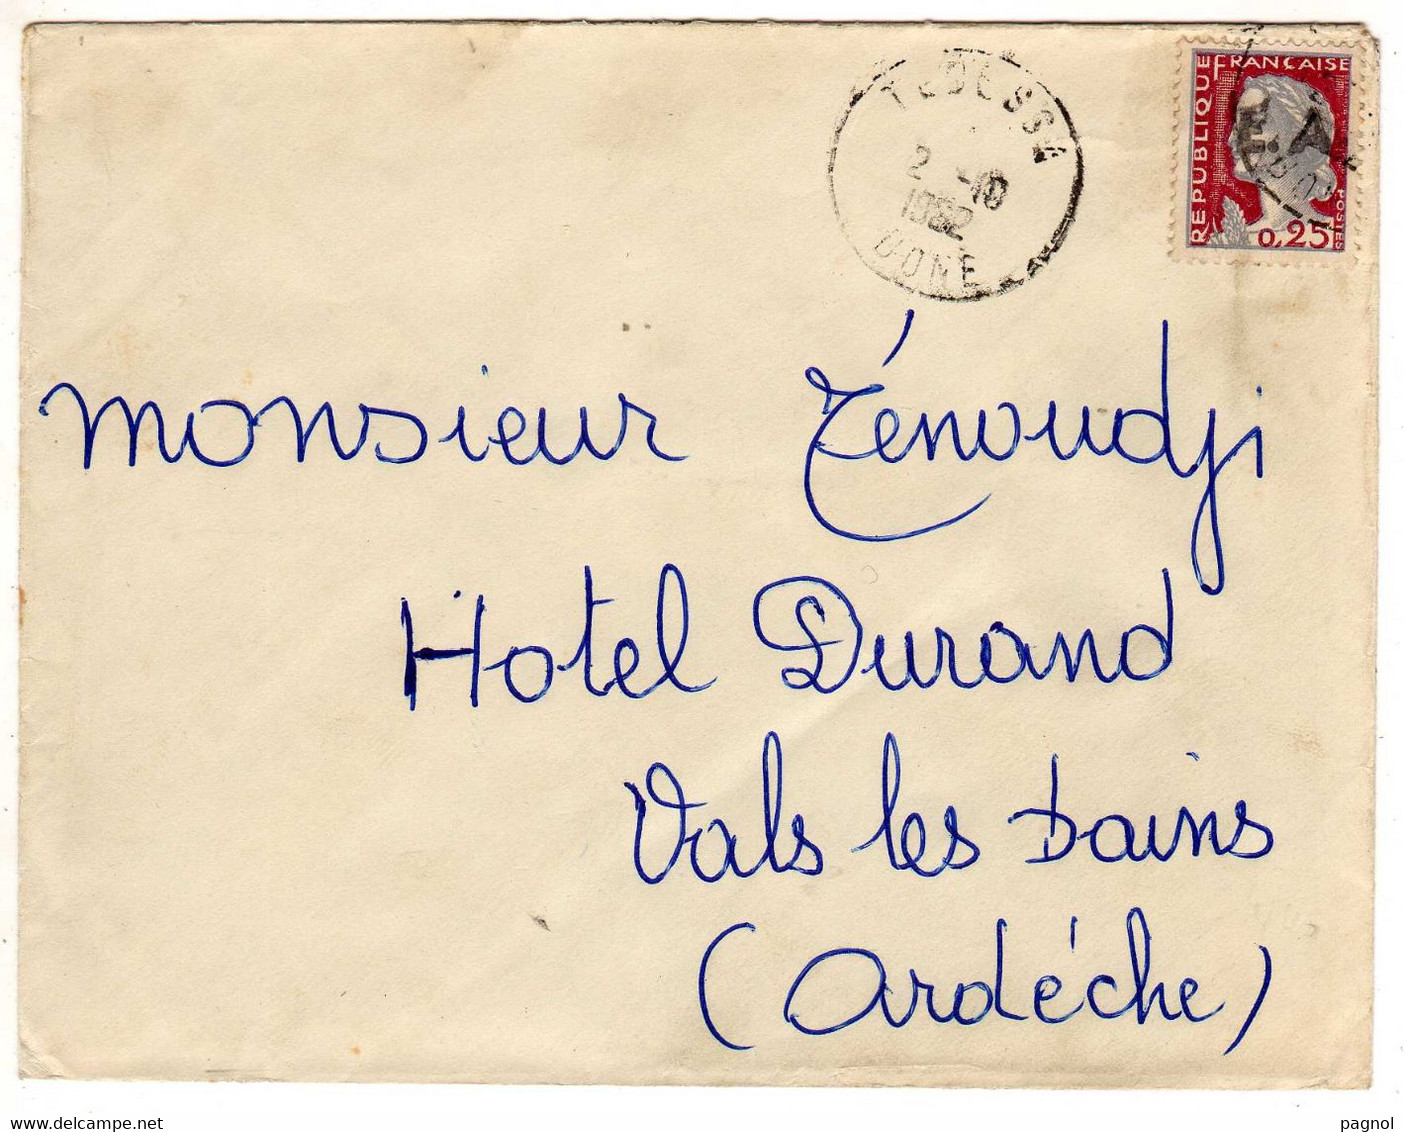 TEBESSA
2 -10
1962
BONE
REPUBLIQUE
FRANÇAISE
E.A.
POSTES
0,25
Monsieur Zénoudji
Hotel Durand
Vals les bains
(Ardéche)
www.delcampe.net
pagnol